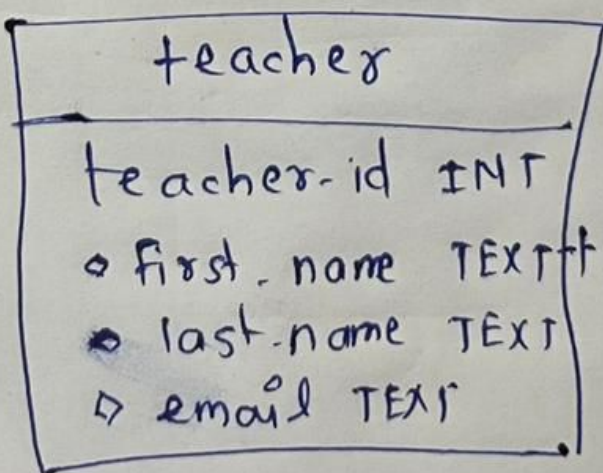 teacher
teacher-id INT
first-name TEXT
last-name TEXT
email TEXT